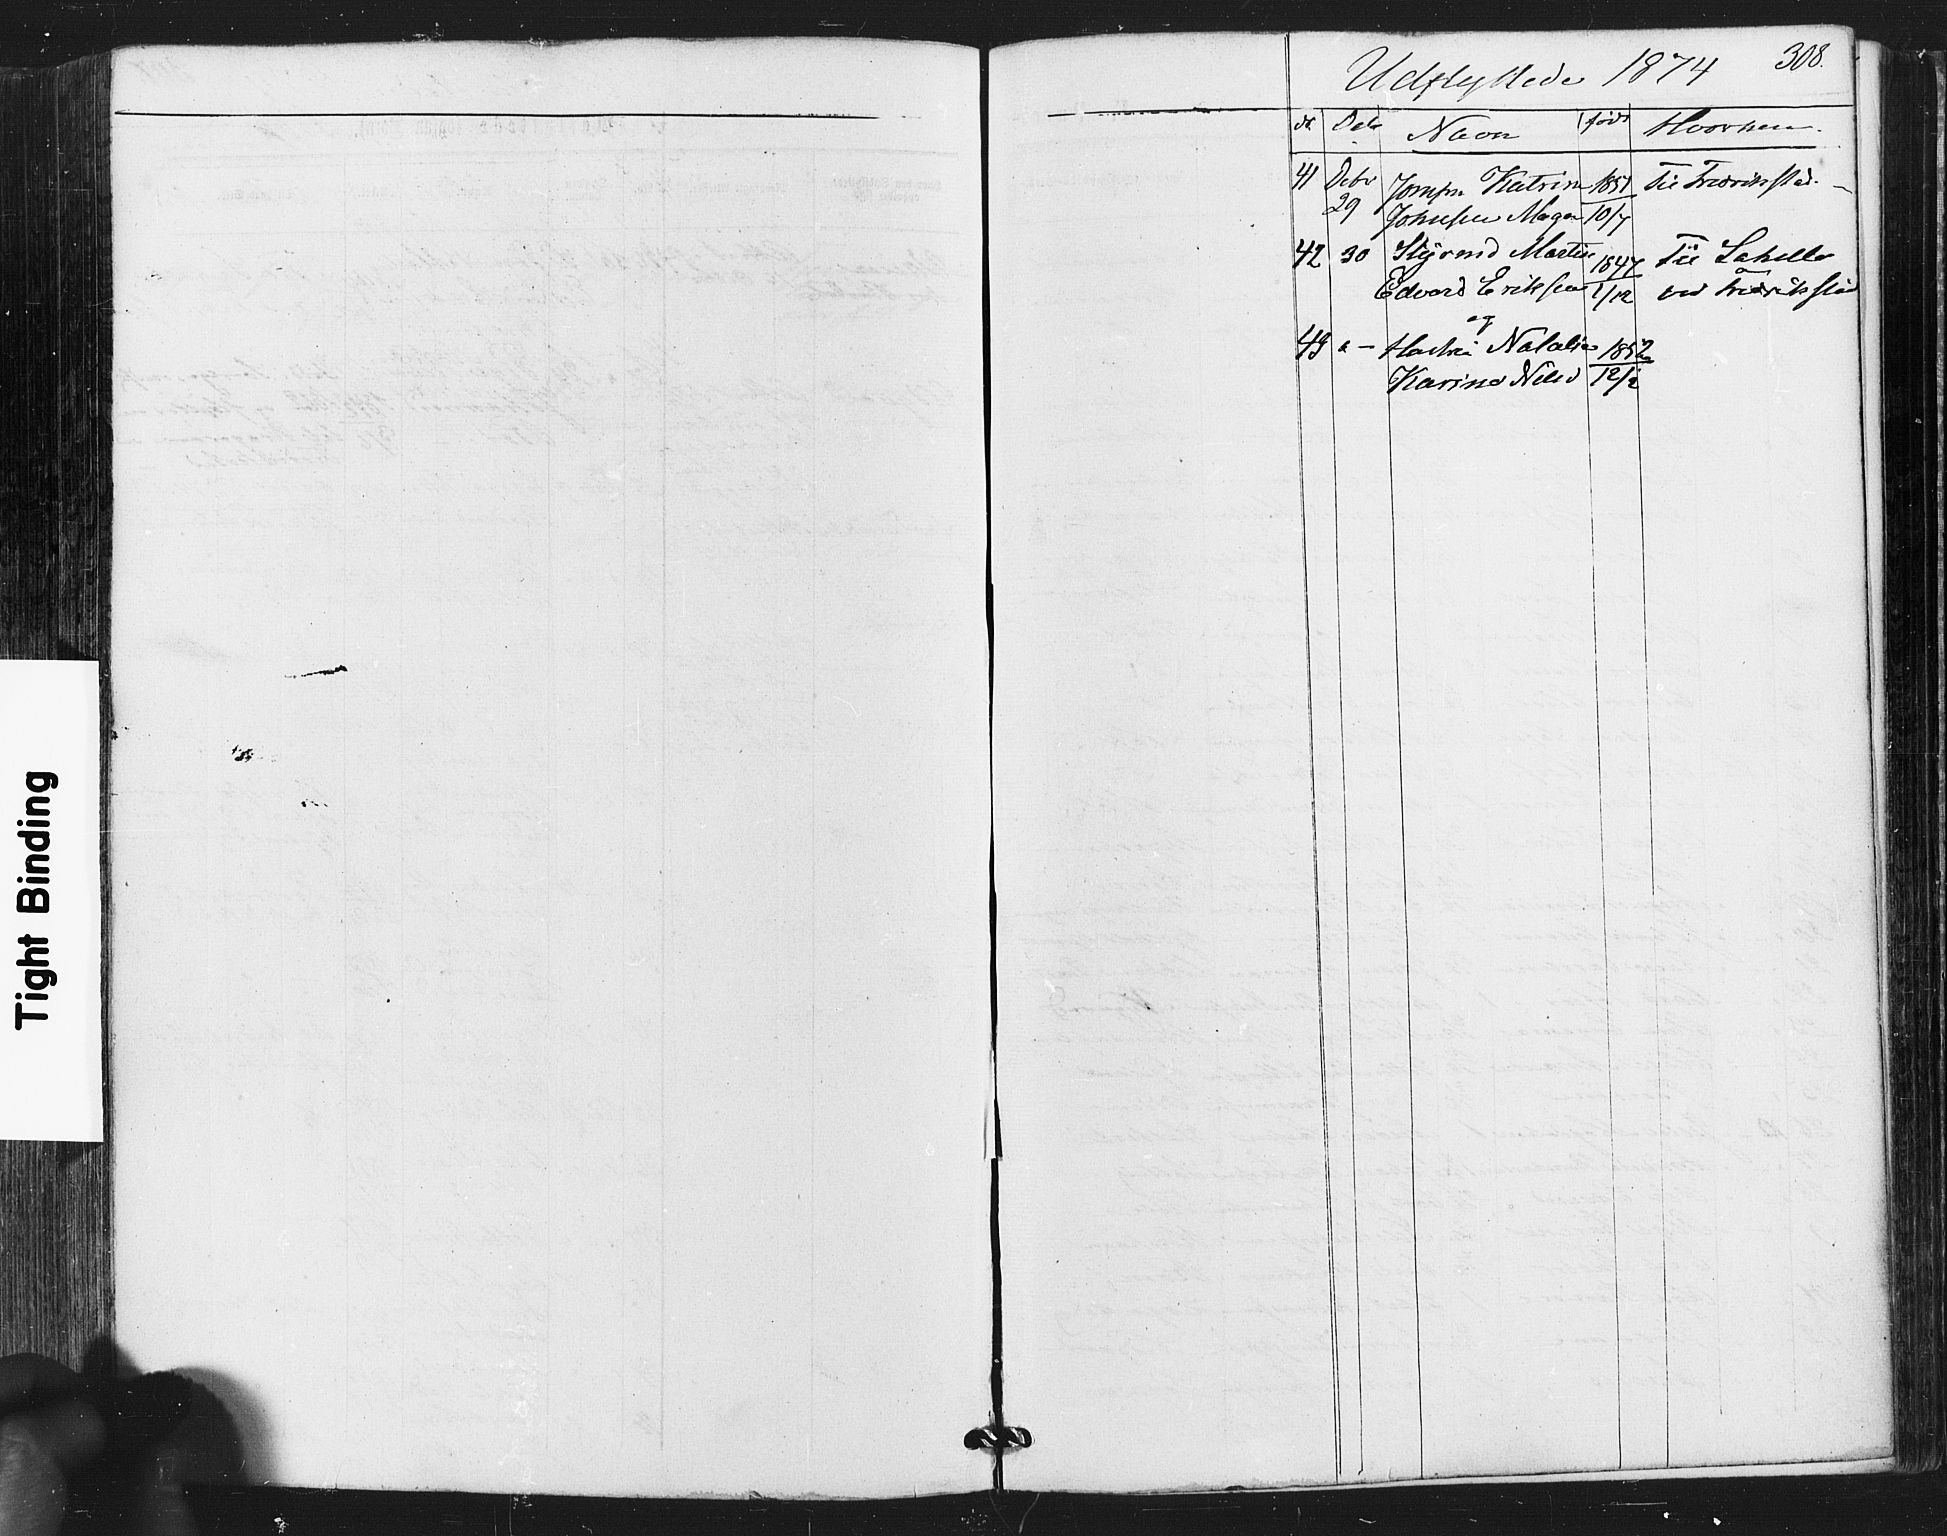 308.
Udflyttede 1874
N. Dato Navn født Hvorhen.
41 Debr Jomfru Katrine 1851 Til Fredrikstad. –
29 Johnsen Magen 10/7
42 30 Styrmd Martin 1847 Til Lahelle
Edvard Eriksen 1/12 ved Fredrikstad
og
43 " – Hustru Natalia 1852
Karine Nilsd 12/2
Tight Binding